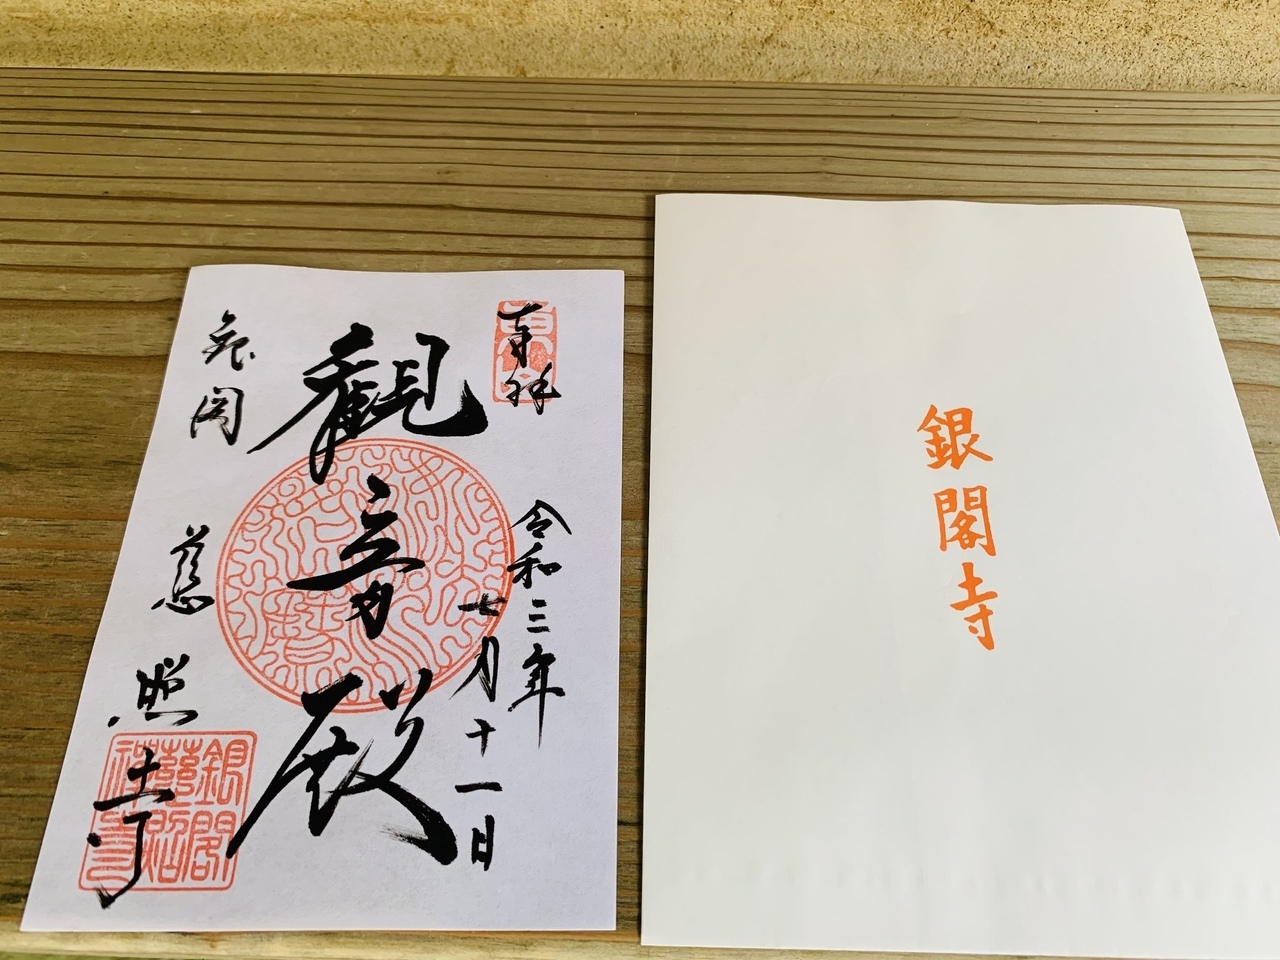 奉拝
令和三年
七月十一日
観音殿
銀閣
慈照寺
銀閣
慈照
禅寺
銀閣寺